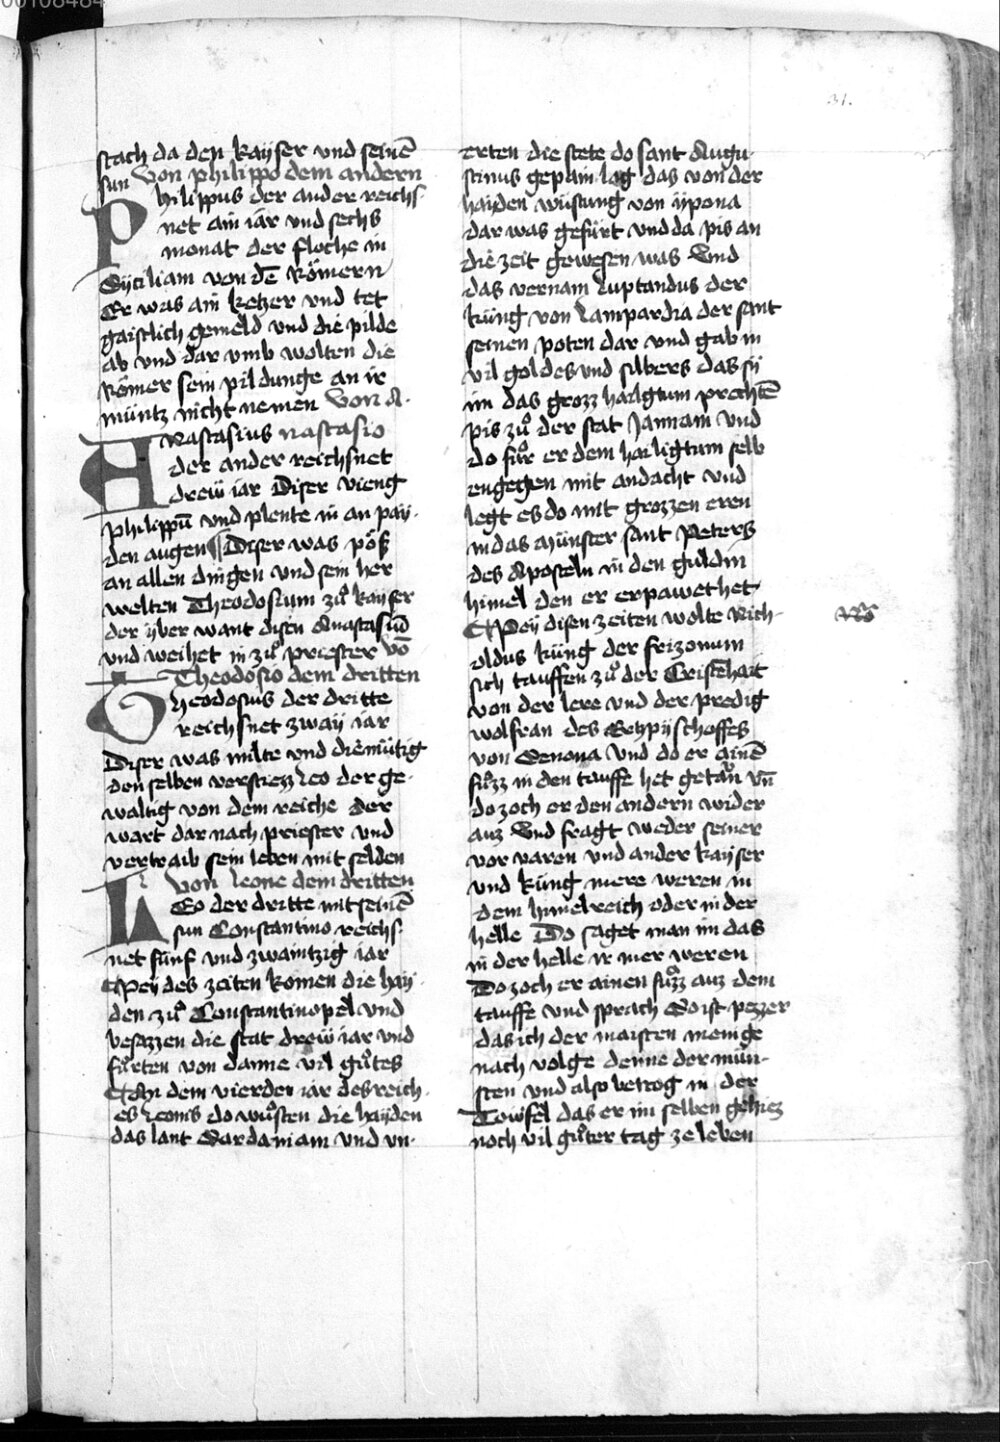 00108484
31.
stach da den kayser vnd seinē
sun Von philippo dem andern
Philippus der ander reichs-
net ain iar vnd sechs
monat der floche in
Syciliam von dē Römern
Er was ain ketzer vnd tet
gaistlich gemeld vnd die pilde
ab vnd dar vmb wolten die
Römer sein pildunge an ir
müntz nicht nemen Von A-
Anastasius nastasio
der ander reichsnet
drew iar Diser vieng
philippū vnd plente in an pay-
den augen ¶ Diser was pöß
an allen dingen vnd sein her
welten Theodosium zuͦ kayser
der yber want disen Anastasiū
vnd weihet in zuͦ priester Vō
Theodosio dem dritten
Theodosius der dritte
reichsnet zway iar
Diser was milte vnd diemütig
den selben verstiezz Leo der ge-
waltig von dem reiche Der
wart dar nach priester vnd
vertraib sein leben mit selden
Von Leone dem dritten
Leo der dritte mit seinē
sun Constantino reichs-
net fünf vnd zwaintzig iar
¶ Pey des zeiten komen die hay-
den zuͦ Constantinopel vnd
besazzen die stat drew iar vnd
fuͤrten von danne vil guͦtes
¶ An dem vierden iar des reich-
es Leonis do wuͦsten die hayden
das lant Sardaniam vnd vn-
erten die stete do sant Augu-
stinus gepain lag das von der
haiden wüstung von ypona
dar was gefürt vnd da pis an
die zeit gewesen was Vnd
das vernam Luptandus der
küng von Lampardia der sant
seinen poten dar vnd gab in
vil goldes vnd silbers das sy
im das grozz hailgtum prechtē
pis zuͦ der stat Jannam vnd
do fuͦr er dem hailigtum selb
engegen mit andacht vnd
legt es do mit grozzen eren
in das münster sant Peters
des Aposteln in den guldin
himel den er erpawet het
¶ Pey disen zeiten wolte Rich-
oldus küng der frizonum
sich tauffen zuͦ der Cristēhait
von der lere vnd der predig
wolfran des Ertzpyschoffes
von Senona Vnd do er ainē
fuͦzz in den tauffe het getan vn̄
do zoch er den andern wider
auz Vnd fragt weder seiner
vor varen vnd ander kayser
vnd küng mere weren in
dem himelreich oder in der
helle Do saget man im das
in der helle ir mer weren
Do zoch er ainen fuͦzz auz dem
tauffe vnd sprach Es ist pezzer
das ich der maisten menige
nach volge denne der min-
sten vnd also betrog in der
Tewfel das er im selben gehiez
noch vil guͦter tag ze leben